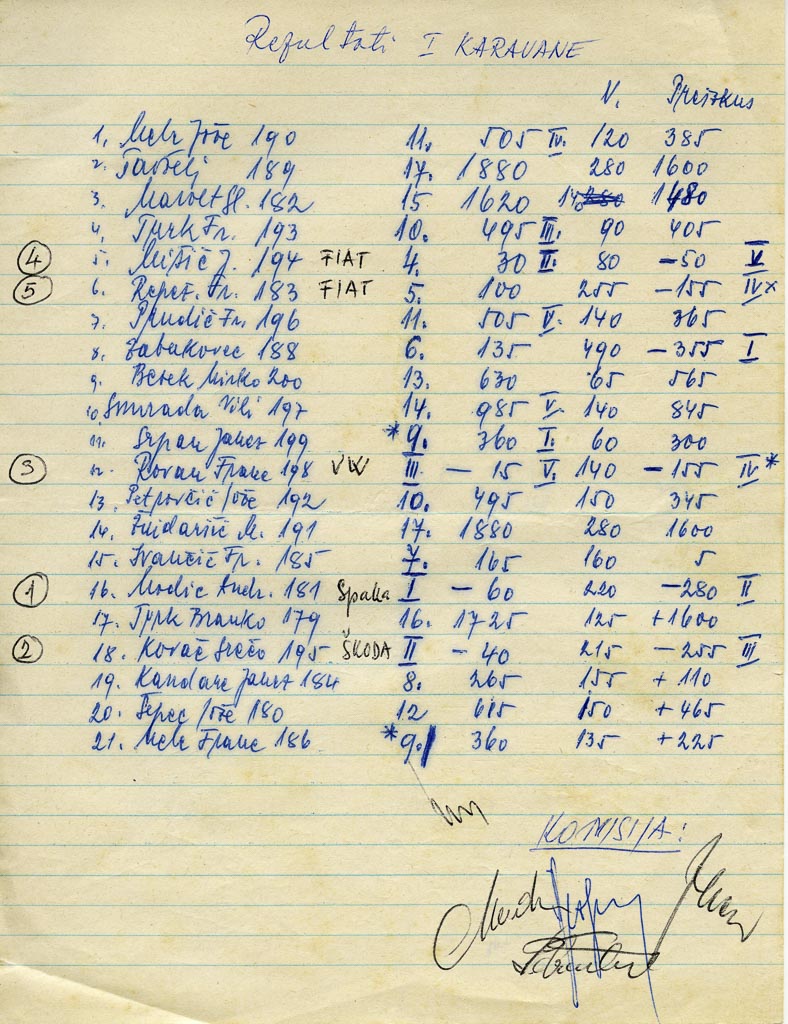 Rezultati I KARAVANE
V. Preizkus
1. Melz Jože 190 11. 505 IV. 120 385
2. 189 17. 1880 280 1600
3. Marolt 182 15 1620 140 1480
4. Turk Fr. 193 10. 495 III. 90 405
4 5. Mišič J. 194 FIAT 4. 30 II. 80 -50 V
5 6. Fr. 183 FIAT 5. 100 255 -155 IV x
7. Prudič Fr. 196 11. 505 V. 140 365
8. Žabukovec 188 6. 135 490 -355 I
9. Mirko 200 13. 630 65 565
10. Smrada Vili 197 14. 985 V. 140 845
11. Janez 199 * 9. 360 I. 60 300
3 12. Rovan Franc 198 VW III. - 15 V. 140 -155 IV *
13. Petrovčič Jože 192 10. 495 150 345
14. Žnidaršič M. 191 17. 1880 280 1600
15. Ivančič Fr. 185 7. 165 160 5
1 16. Modic Andr. 181 Spaka I - 60 220 -280 II
17. Turk Branko 179 16. 1725 125 +1600
2 18. Kovač Srečo 195 ŠKODA II - 40 215 -255 III
19. Kandare Janez 184 8. 265 155 +110
20. Jože 180 12 615 150 +465
21. Franc 186 * 9. 360 135 +225
KOMISIJA: